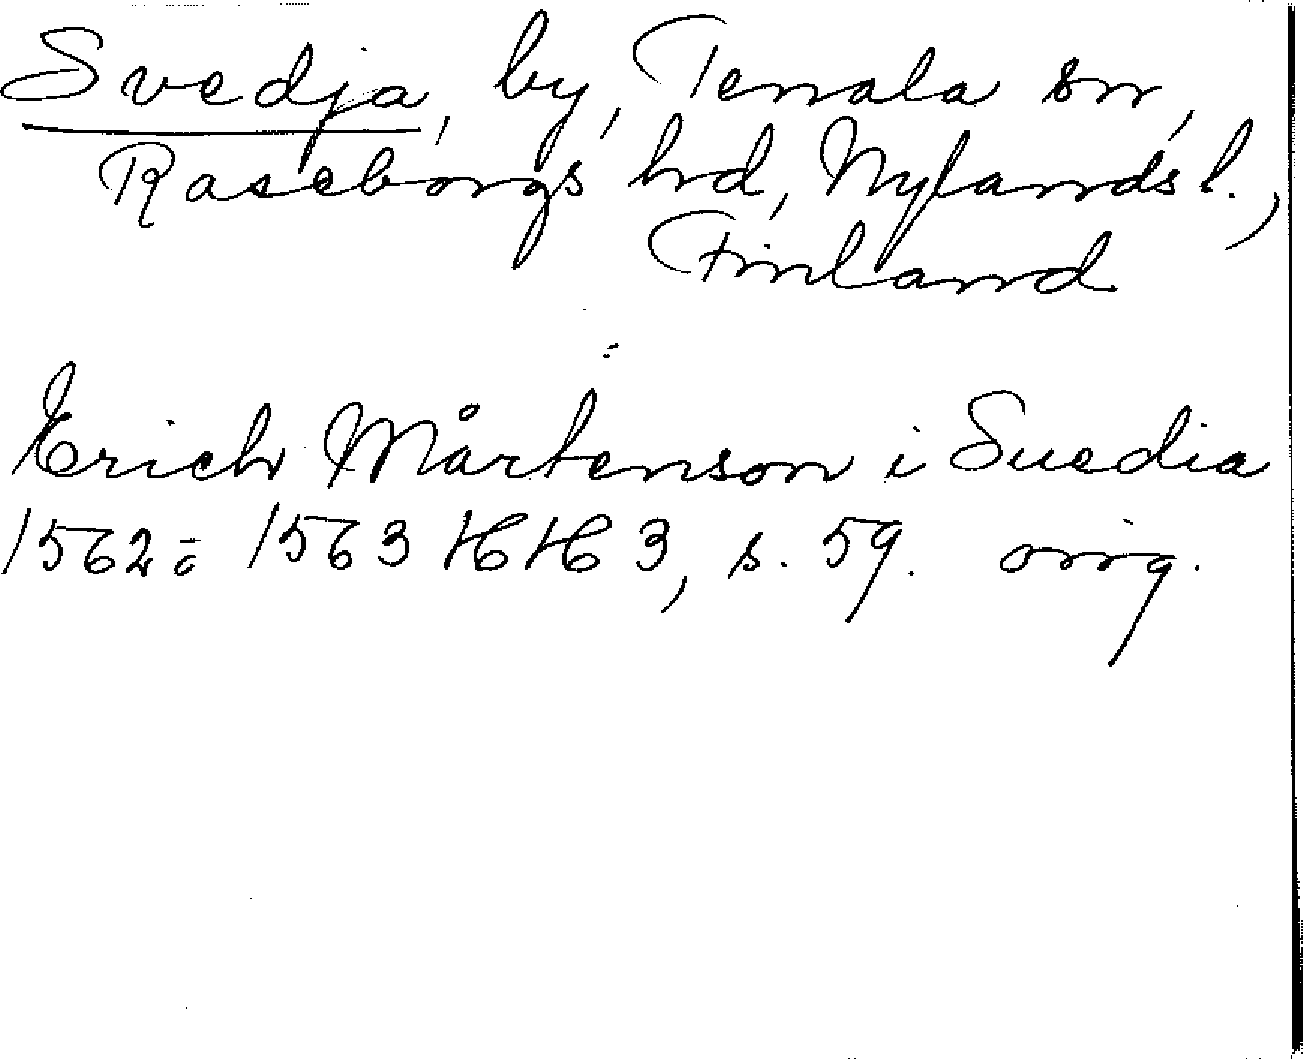 Svedja, by, Tenala sn,
Raseborgs hd, Nylands l.,
Finland
Erich Mårtenson i Suedia
1562 1563 KH 3, s. 59. orig.